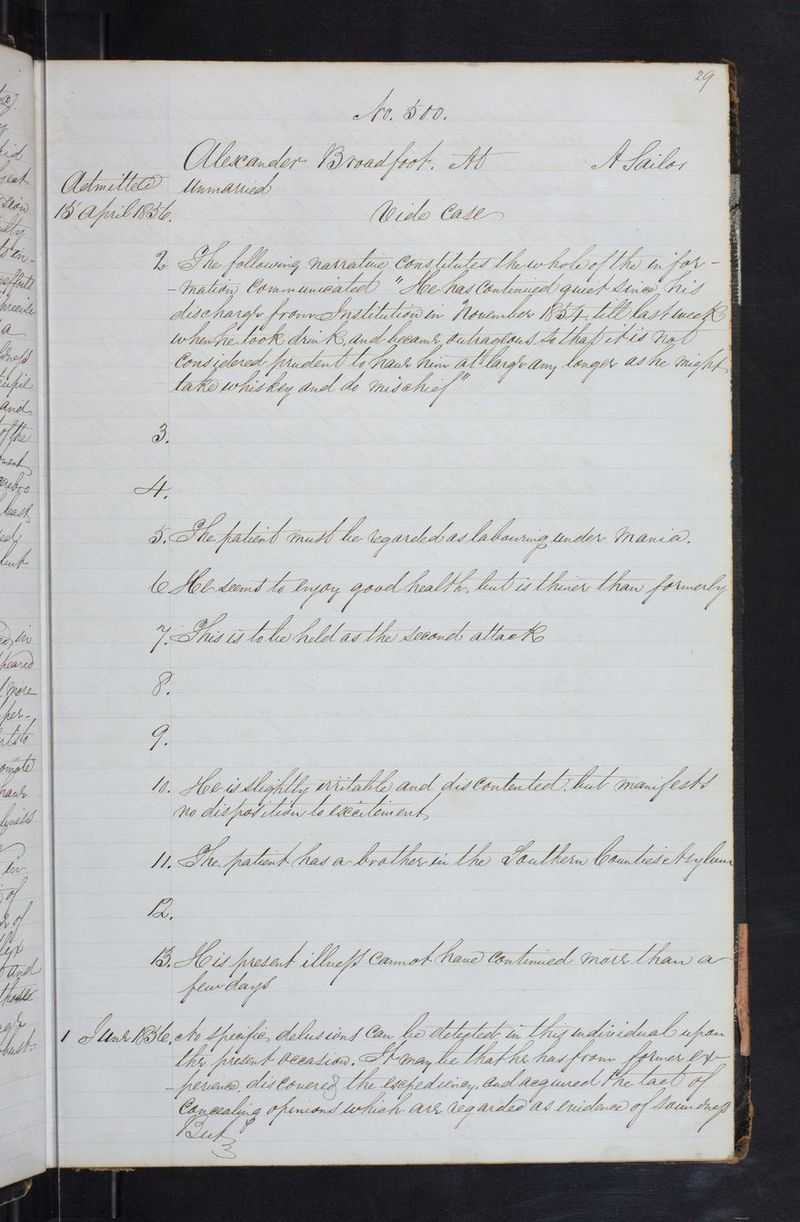 29
No. 500.
Alexander Broadfoot. At A Sailor
Admitted Unmarried
15 April 1856. Vide Case
2 The following narrative constitutes the whole of the infor-
-mation Communicated "He has Continued quiet since his
discharge from Institution in November 1854, till last week
when he took drink, and became outrageous, so that it is not
Considered prudent to have him at large any longer as he might
take whiskey and do mischief"
3.
4.
5. The patient must be regarded as labouring under Mania.
6 He seems to enjoy good health, but is thiner than formerly
7. This is to be held as the second attack
8.
9.
10. He is slightly irritable and discontented, but manifests
no disposition to excitement,
11. The patient has a brother in the Southern Counties Asylum
12.
13. His present illness cannot have continued more than a
few days
1 June 1856. No specific delusions can be detected in this individual upon
the present occasion. It may be that he has from former ex-
-perience discovered the expediency, and acquired the tact of
Concealing opinions which are regarded as evidence of soundness
But